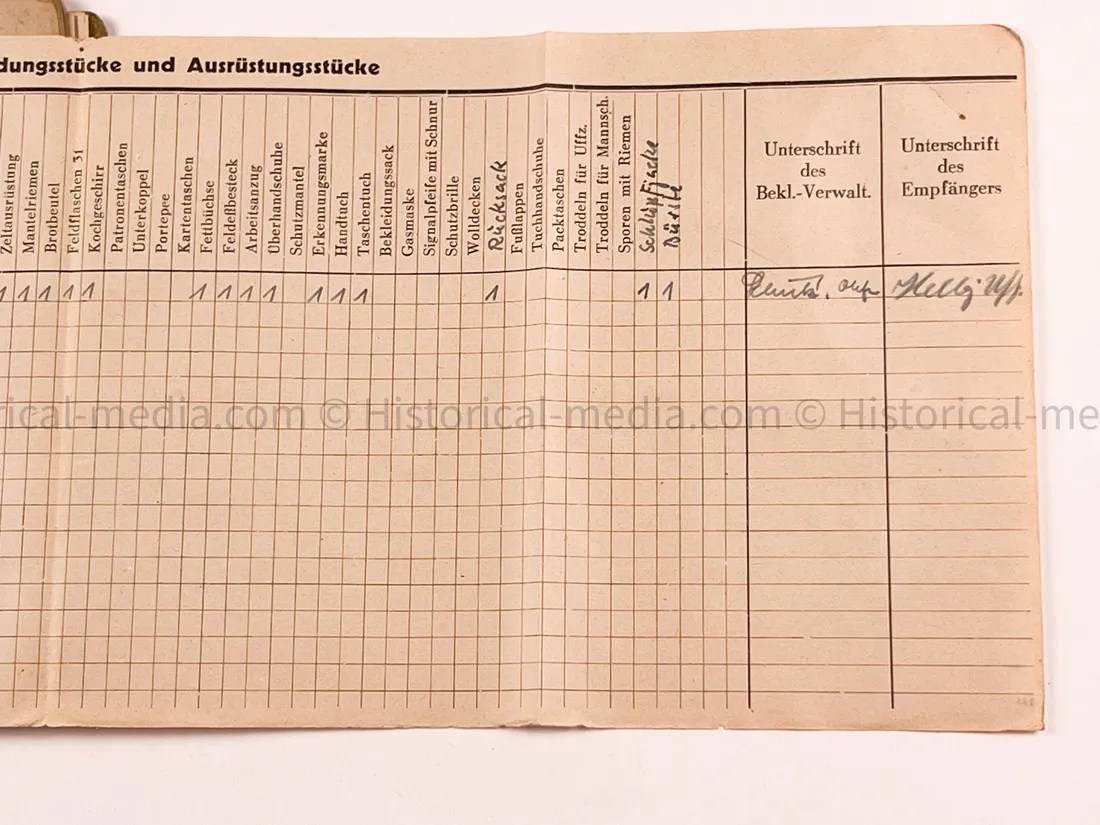 dungsstücke und Ausrüstungsstücke
Zeltausrüstung
Mantelriemen
Brotbeutel
Feldflaschen 31
Kochgeschirr
Patronentaschen
Unterkoppel
Portepee
Kartentaschen
Fettbüchse
Feldeßbesteck
Arbeitsanzug
Überhandschuhe
Schutzmantel
Erkennungsmarke
Handtuch
Taschentuch
Bekleidungssack
Gasmaske
Signalpfeife mit Schnur
Schutzbrille
Wolldecken
Rücksack
Fußlappen
Tuchhandschuhe
Packtaschen
Troddeln für Uffz.
Troddeln für Mannsch.
Sporen mit Riemen
Schlupfjacke
Unterschrift
des
Bekl.-Verwalt.
Unterschrift
des
Empfängers
1 1 1 1 1 1 1 1 1 1 1 1 1 1 1
rical-media.com © Historical-media.com © Historical-me